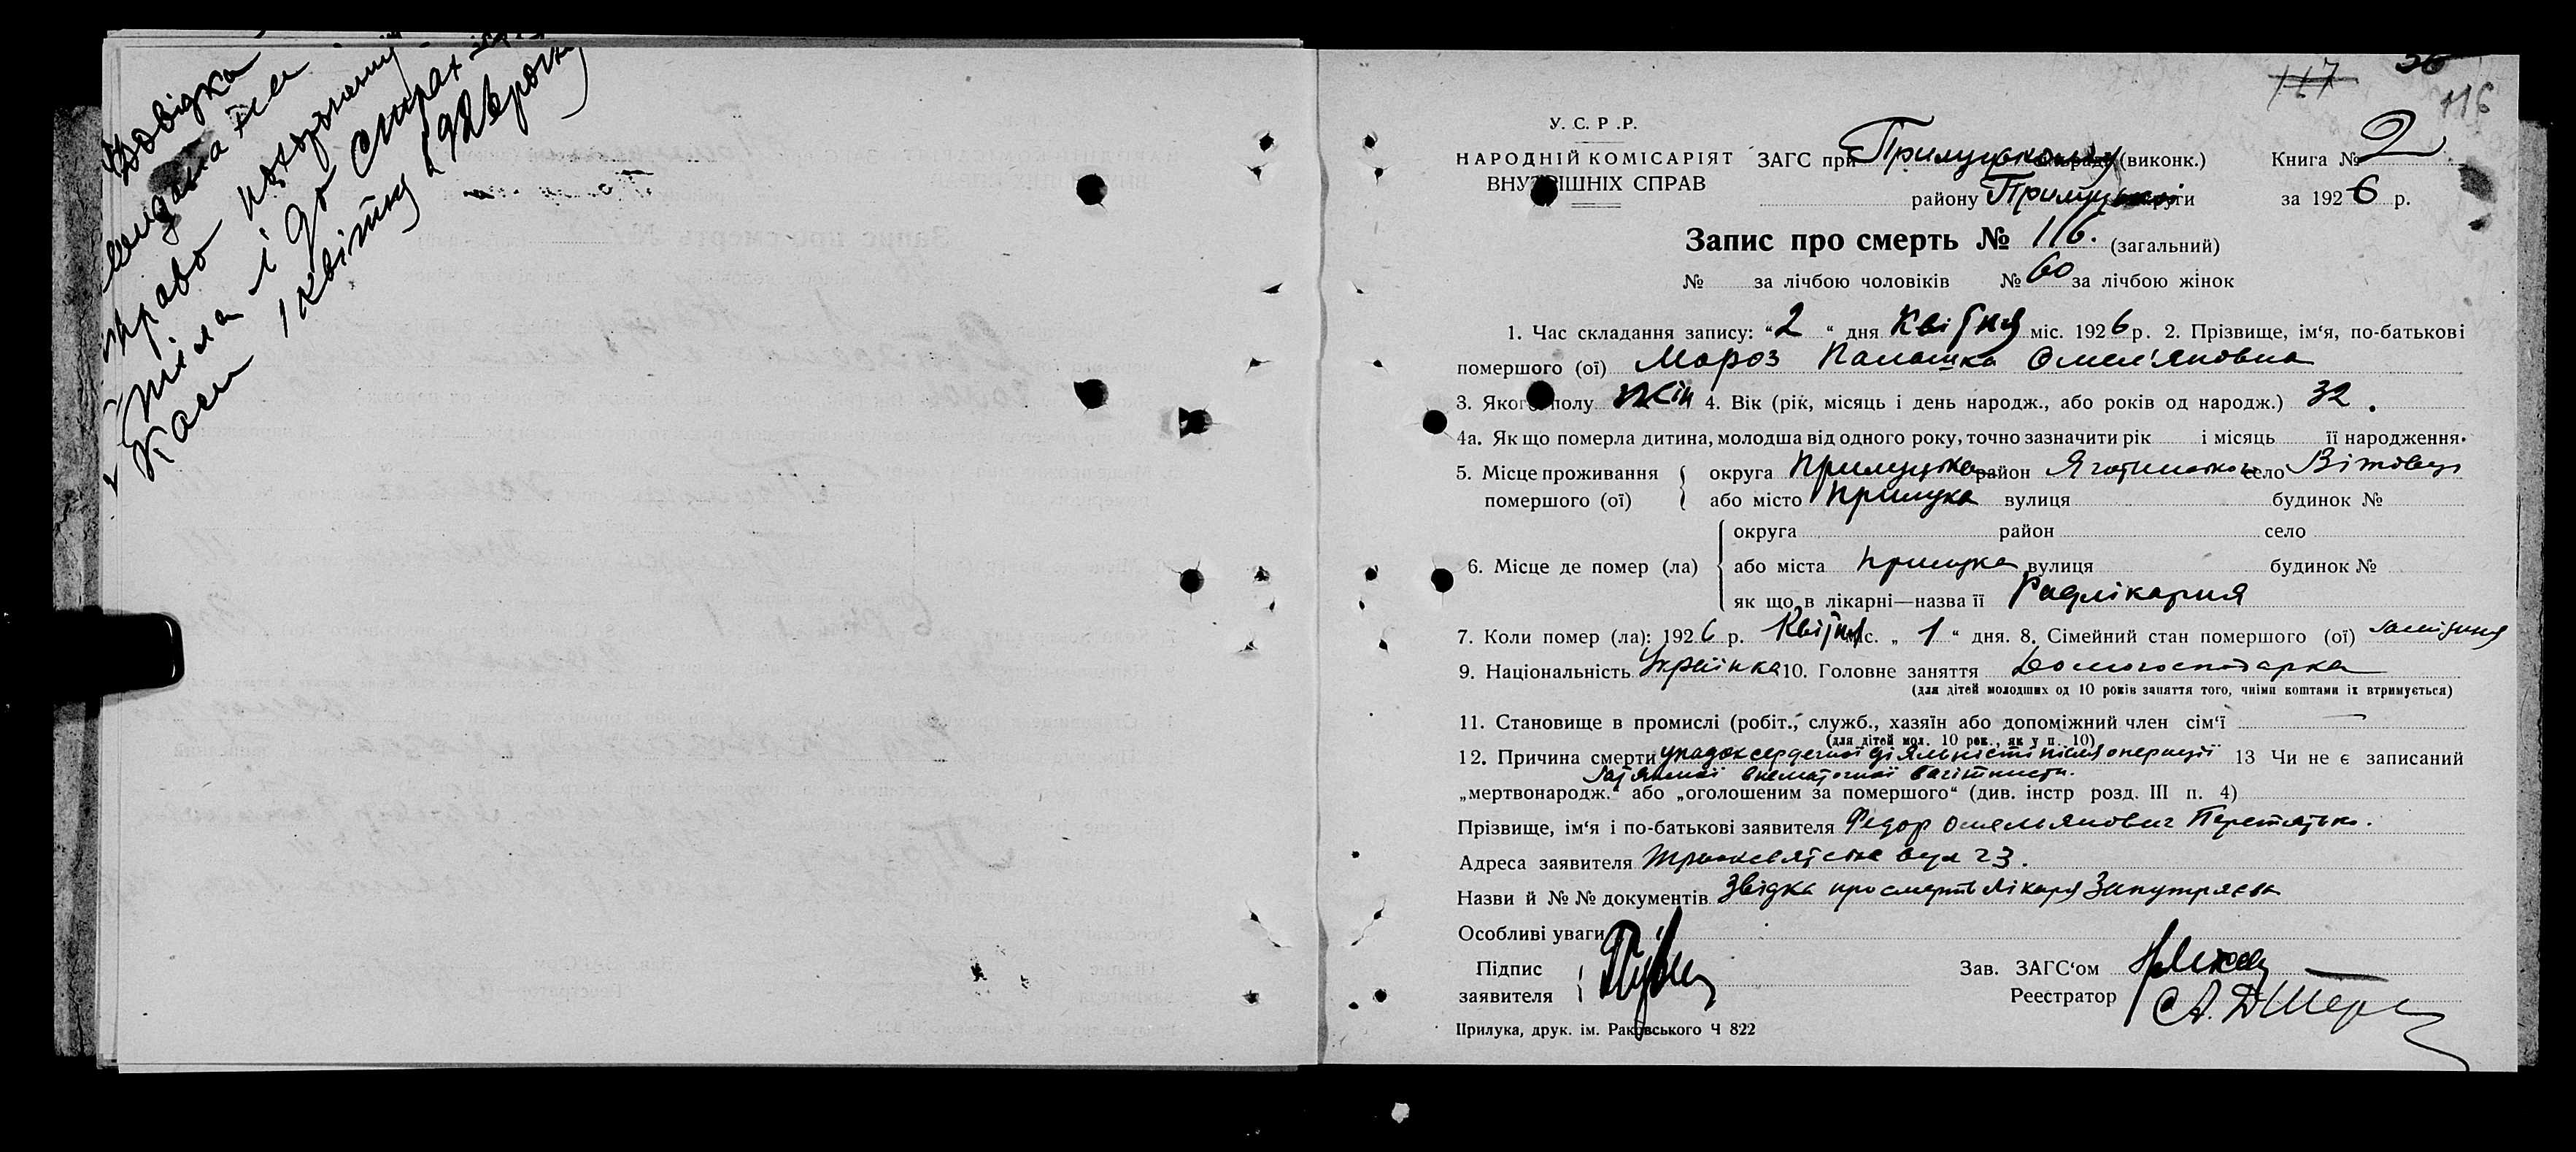 Довідка
видана на
право похоронення
тіла і до страх
каси 1 квітня 1926 року
117 36
116
У. С. Р. Р.
НАРОДНІЙ КОМІСАРІЯТ
ВНУТРІШНІХ СПРАВ
ЗАГС при Прилуцькому (виконк.)
району Прилуцької округи
Книга № 2
за 1926 р.
Запис про смерть № 116. (загальний)
№ за лічбою чоловіків № 60 за лічбою жінок
1. Час складання запису: “2“ дня Квітня міс. 1926 р. 2. Прізвище, ім‘я, по-батькові
помершого (ої) Мороз Палашка Омел'яновна
3. Якого полу жін 4. Вік (рік, місяць і день народж., або років од народж.) 32.
4а. Як що померла дитина, молодша від одного року, точно зазначити рік і місяць її народження.
5. Місце проживання помершого (ої) { округа Прилуцька район Яготинського село
або місто Прилука вулиця будинок №
6. Місце де помер (ла) { округа район село
або міста Прилука вулиця будинок №
як що в лікарні—назва її Радлікарня
7. Коли помер (ла): 1926 р. Квітня міс. „ 1 “ дня. 8. Сімейний стан помершого (ої) замужня
9. Національність Українка 10. Головне заняття Домогосподарка
(для дітей молодших од 10 років заняття того, чиїми коштами їх втримується)
11. Становище в промислі (робіт., служб., хазяїн або допоміжний член сім‘ї —
(для дітей мол. 10 рок., як у п. 10)
12. Причина смерти упадок сердечної діяльністі після операції 13 Чи не є записаний
внематочної вагітности.
„мертвонародж.“ або „оголошеним за помершого“ (див. інстр розд. III п. 4)
Прізвище, ім‘я і по-батькові заявителя Федор Омельянович Перетятько.
Адреса заявителя вул 23.
Назви й №№ документів Звідка про смерть лікаря
Особливі уваги
Підпис
заявителя
Зав. ЗАГС‘ом
Реестратор
Прилука, друк. ім. Раковського Ч 822